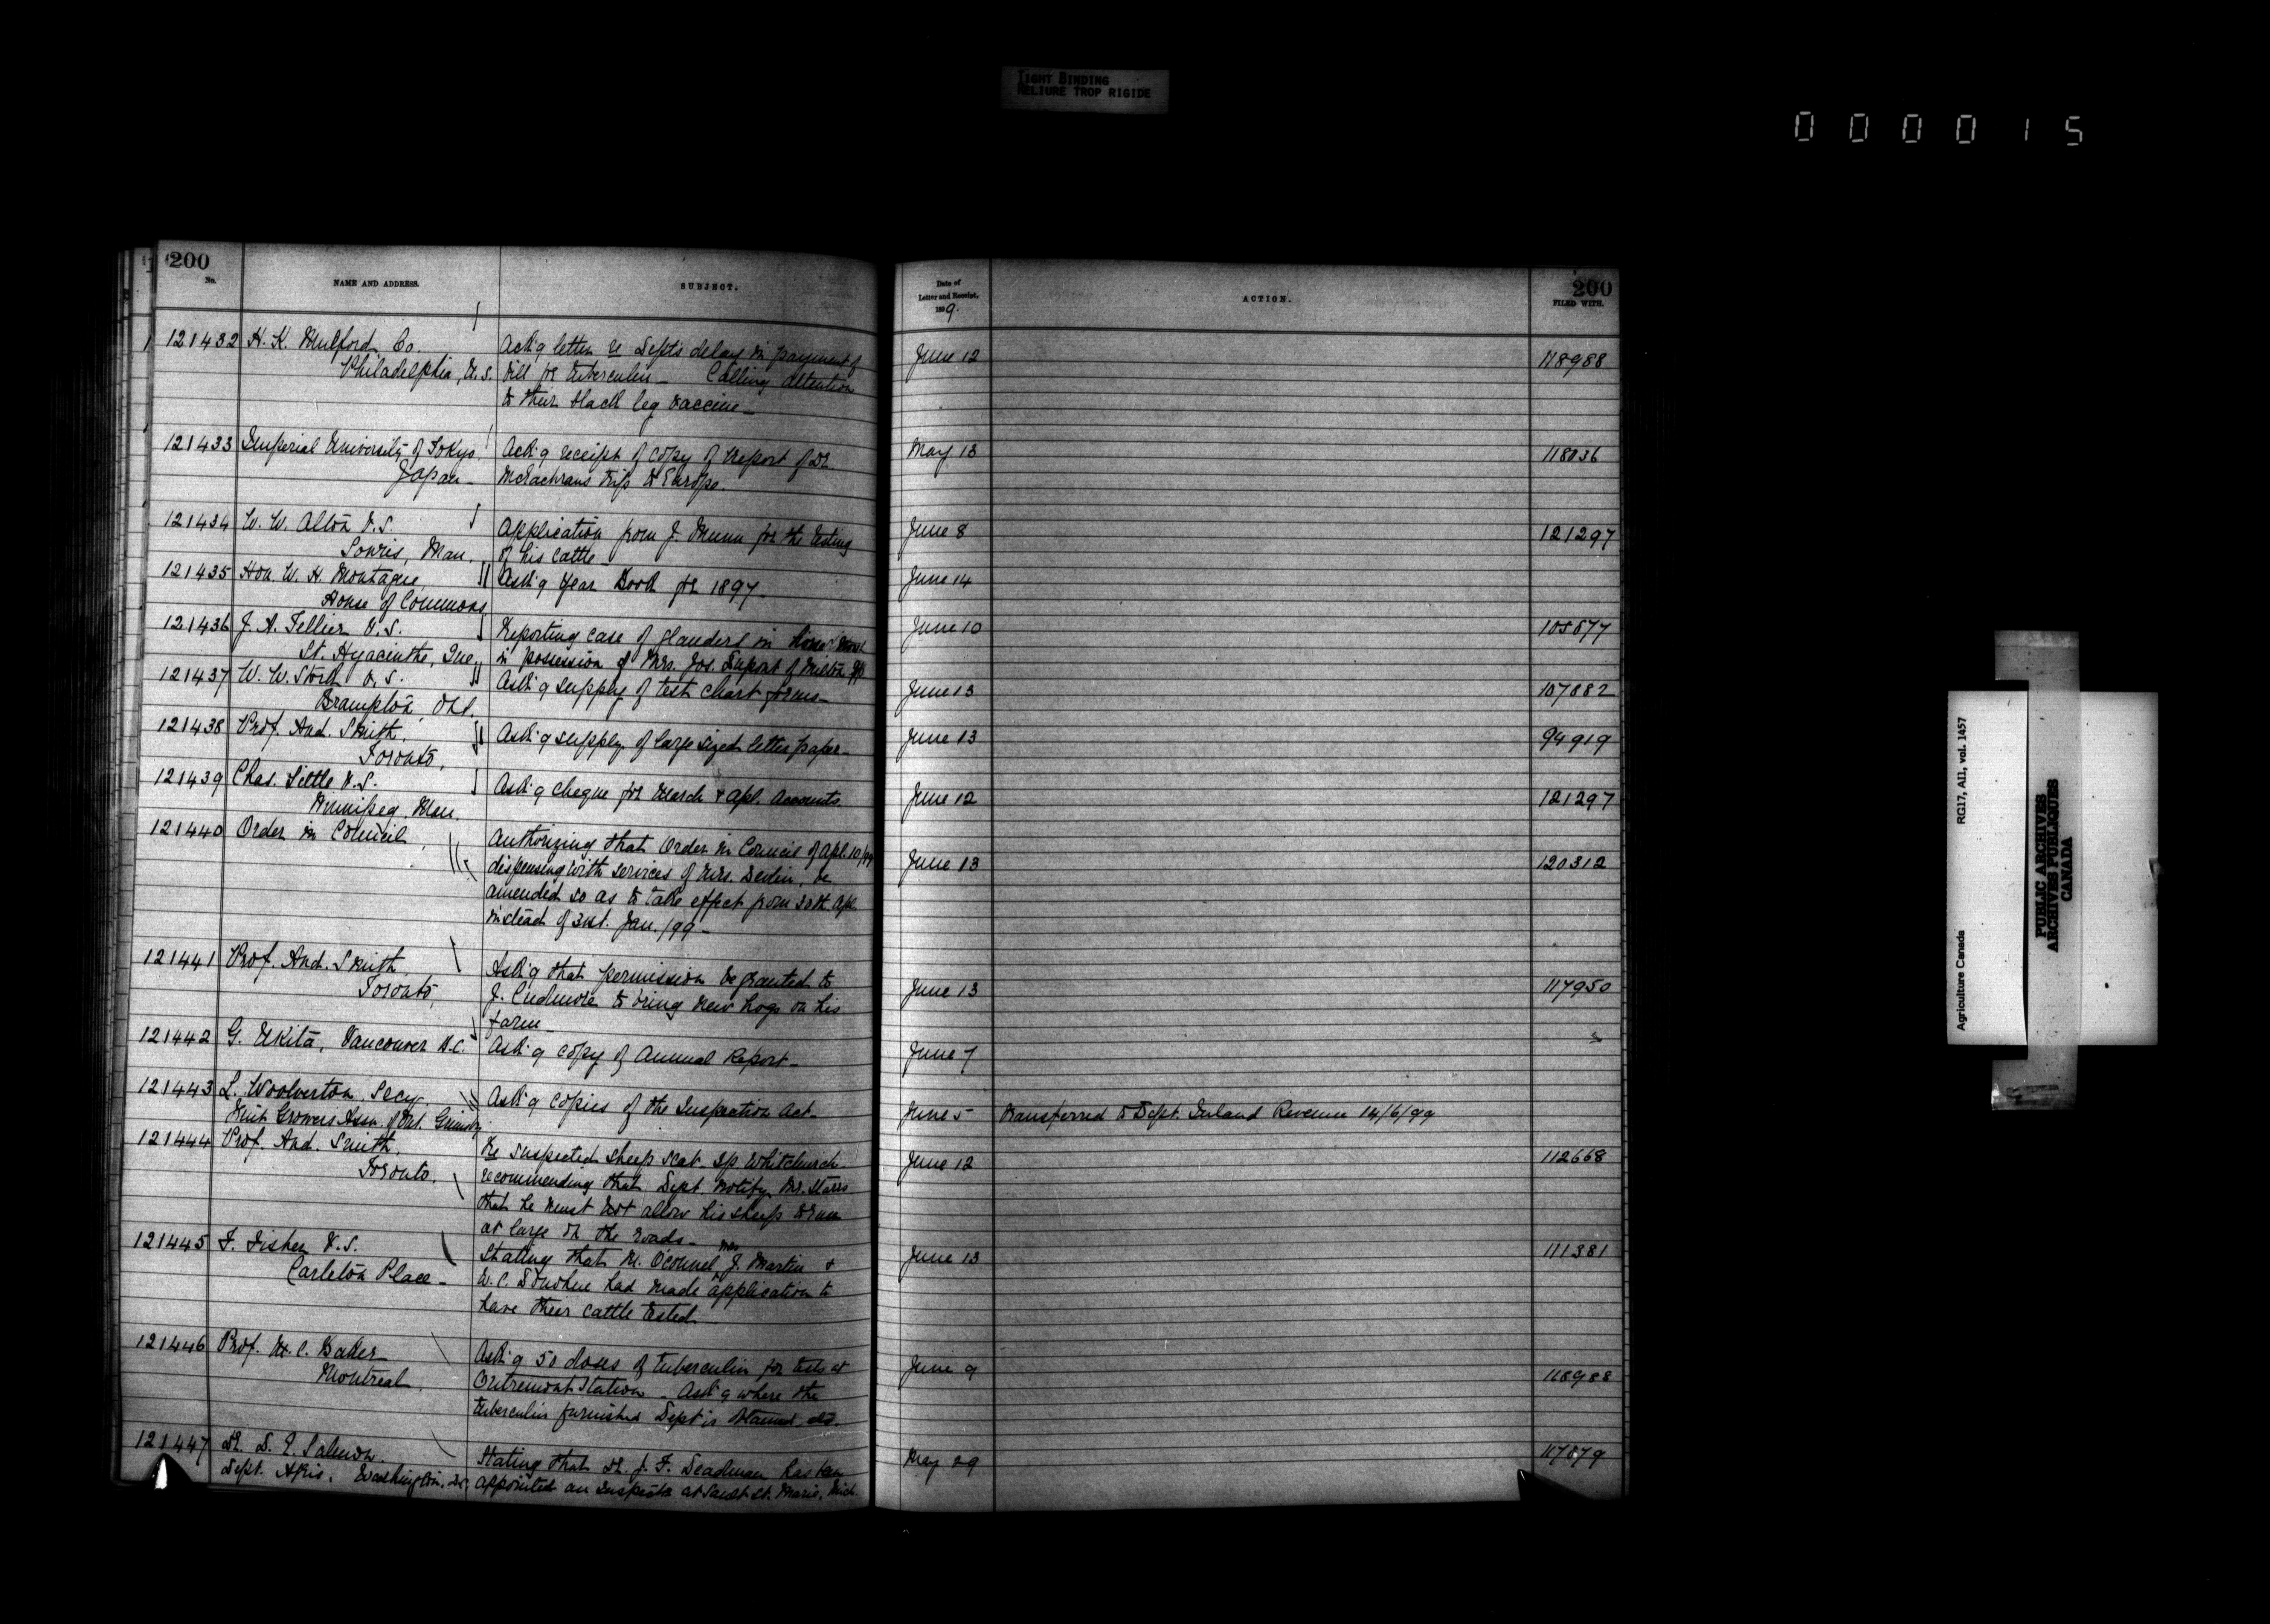 TIGHT BINDING
RELIURE TROP RIGIDE
000015
200
No.
NAME AND ADDRESS.
SUBJECT.
Date of
Letter and Receipt,
1899.
ACTION.
200
FILED WITH.
121432 H. K. Mulford Co. Ack'g letter re Dept's delay in payment of June 12 118988
Philadelphia, U.S. bill for tuberculin - Calling attention
to their black leg vaccine -
121433 Imperial University of Tokyo, Ack'g receipt of copy of Report of Dr. May 13 118036
Japan - McEachrans trip to Europe.
121434 W. W. Alton V.S. Application from J. Munn for the testing June 8 121297
Souris, Man. of his cattle -
121435 Hon. W. H. Montague, Ask'g Year Book for 1897 - June 14
House of Commons
121436 J. A. Tellier V.S. Reporting case of glanders in June 10
St. Hyacinthe, Que. in possession of Mrs. Jos. Dupont of Milton
121437 W. W. Stork V.S. Ask'g supply of test chart forms - June 13 107882
Brampton, Ont.
121438 Prof. And. Smith, Ask'g supply of large sized letter paper - June 13 94919
Toronto,
121439 Chas. Little V.S. Ask'g cheque for March & Apl. Accounts June 12 121297
Winnipeg, Man.
121440 Order in Council, Authorizing that Order in Council of Apl. 10/99 June 13 120312
dispensing with services of Mrs. Devlin, be
amended so as to take effect from 30th. Apl.
instead of 31st. Jan. /99 -
121441 Prof. And. Smith, Ask'g that permission be granted to June 13 117950
Toronto, J. Cudmore to bring new hogs on his
farm -
121442 G. Ukita, Vancouver B.C. Ask'g copy of Annual Report - June 7
121443 L. Woolverton, Secy. Ask'g copies of the Inspection Act - June 5 Transferred to Dept. Inland Revenue 14/6/99
Fruit Growers Assn. of Ont. Grimsby
121444 Prof. And. Smith, Re suspected sheep scab Tp Whitchurch - June 12 112668
Toronto. recommending that Dept. notify Mr. Starrs
that he must not allow his sheep to run
at large on the roads -
121445 F. Fisher V.S. Stating that M. O'Connel, Mrs J. Martin & June 13 111381
Carleton Place - W. C. Donohue had made application to
have their cattle tested -
121446 Prof. M. C. Baker Ask'g 50 doses of tuberculin for tests at June 9 118988
Montreal, Outremont Station - Ask'g where the
tuberculin furnished Dept is obtained etc.
121447 Dr. D. E. Salmon. Stating that Dr. J. F. Deadman has been May 29 117879
Dept. Agric. Washington, D.C. appointed an Inspector at Sault St. Marie, Mich.
Agriculture Canada RG17, AII, vol. 1457
PUBLIC ARCHIVES
ARCHIVES PUBLIQUES
CANADA